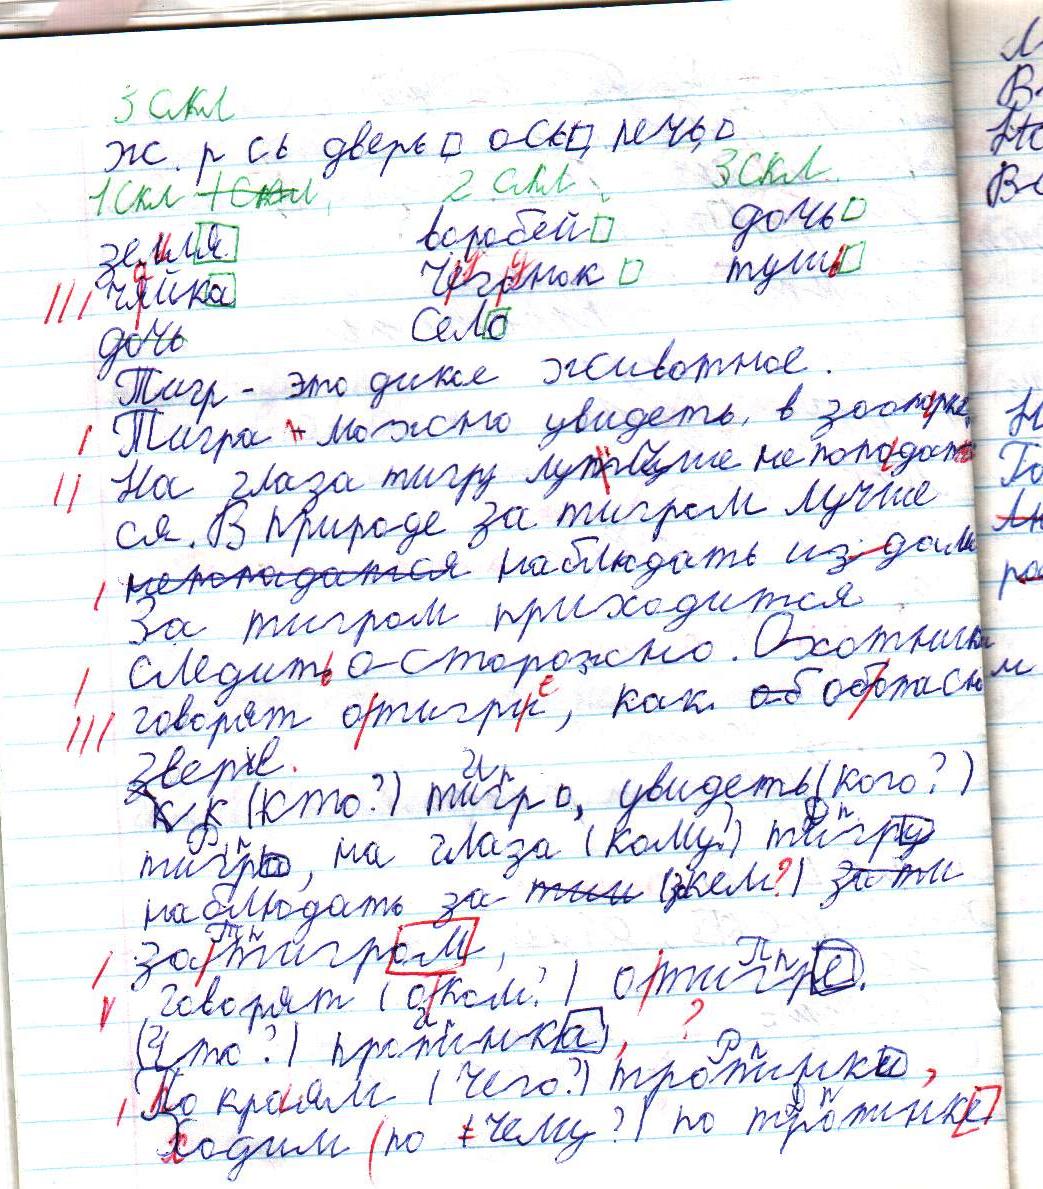 3 скл
ж. р сь дверь ось, речь,
1 скл 1 скл, 2 скл, 3 скл.
земля воробей дочь
чайка тушь
дочь село
Тигр - это дикое животное.
Тигра можно увидеть, в зоопарке,
На глаза тигру лучше непопадать
ся. В природе за тигром лучше
непопадатся наблюдать из дали
За тигром приходится
следить о-сторожно. Охотники
говорят отигре, как об обопасном
звере.
К к (кто?) тигр, увидеть (кого?)
И п
тигра, на глаза (кому?) тигру
Р. п Д п
наблюдать за тии (зкем?) за ти
за тигром,
Т п
говорят (о ком?) о тигре.
П п
(Что?) тропинка, ?
И п
По кроям (чего?) тропинки,
Р п
Ходим (по чему?) по тропинке
Д п